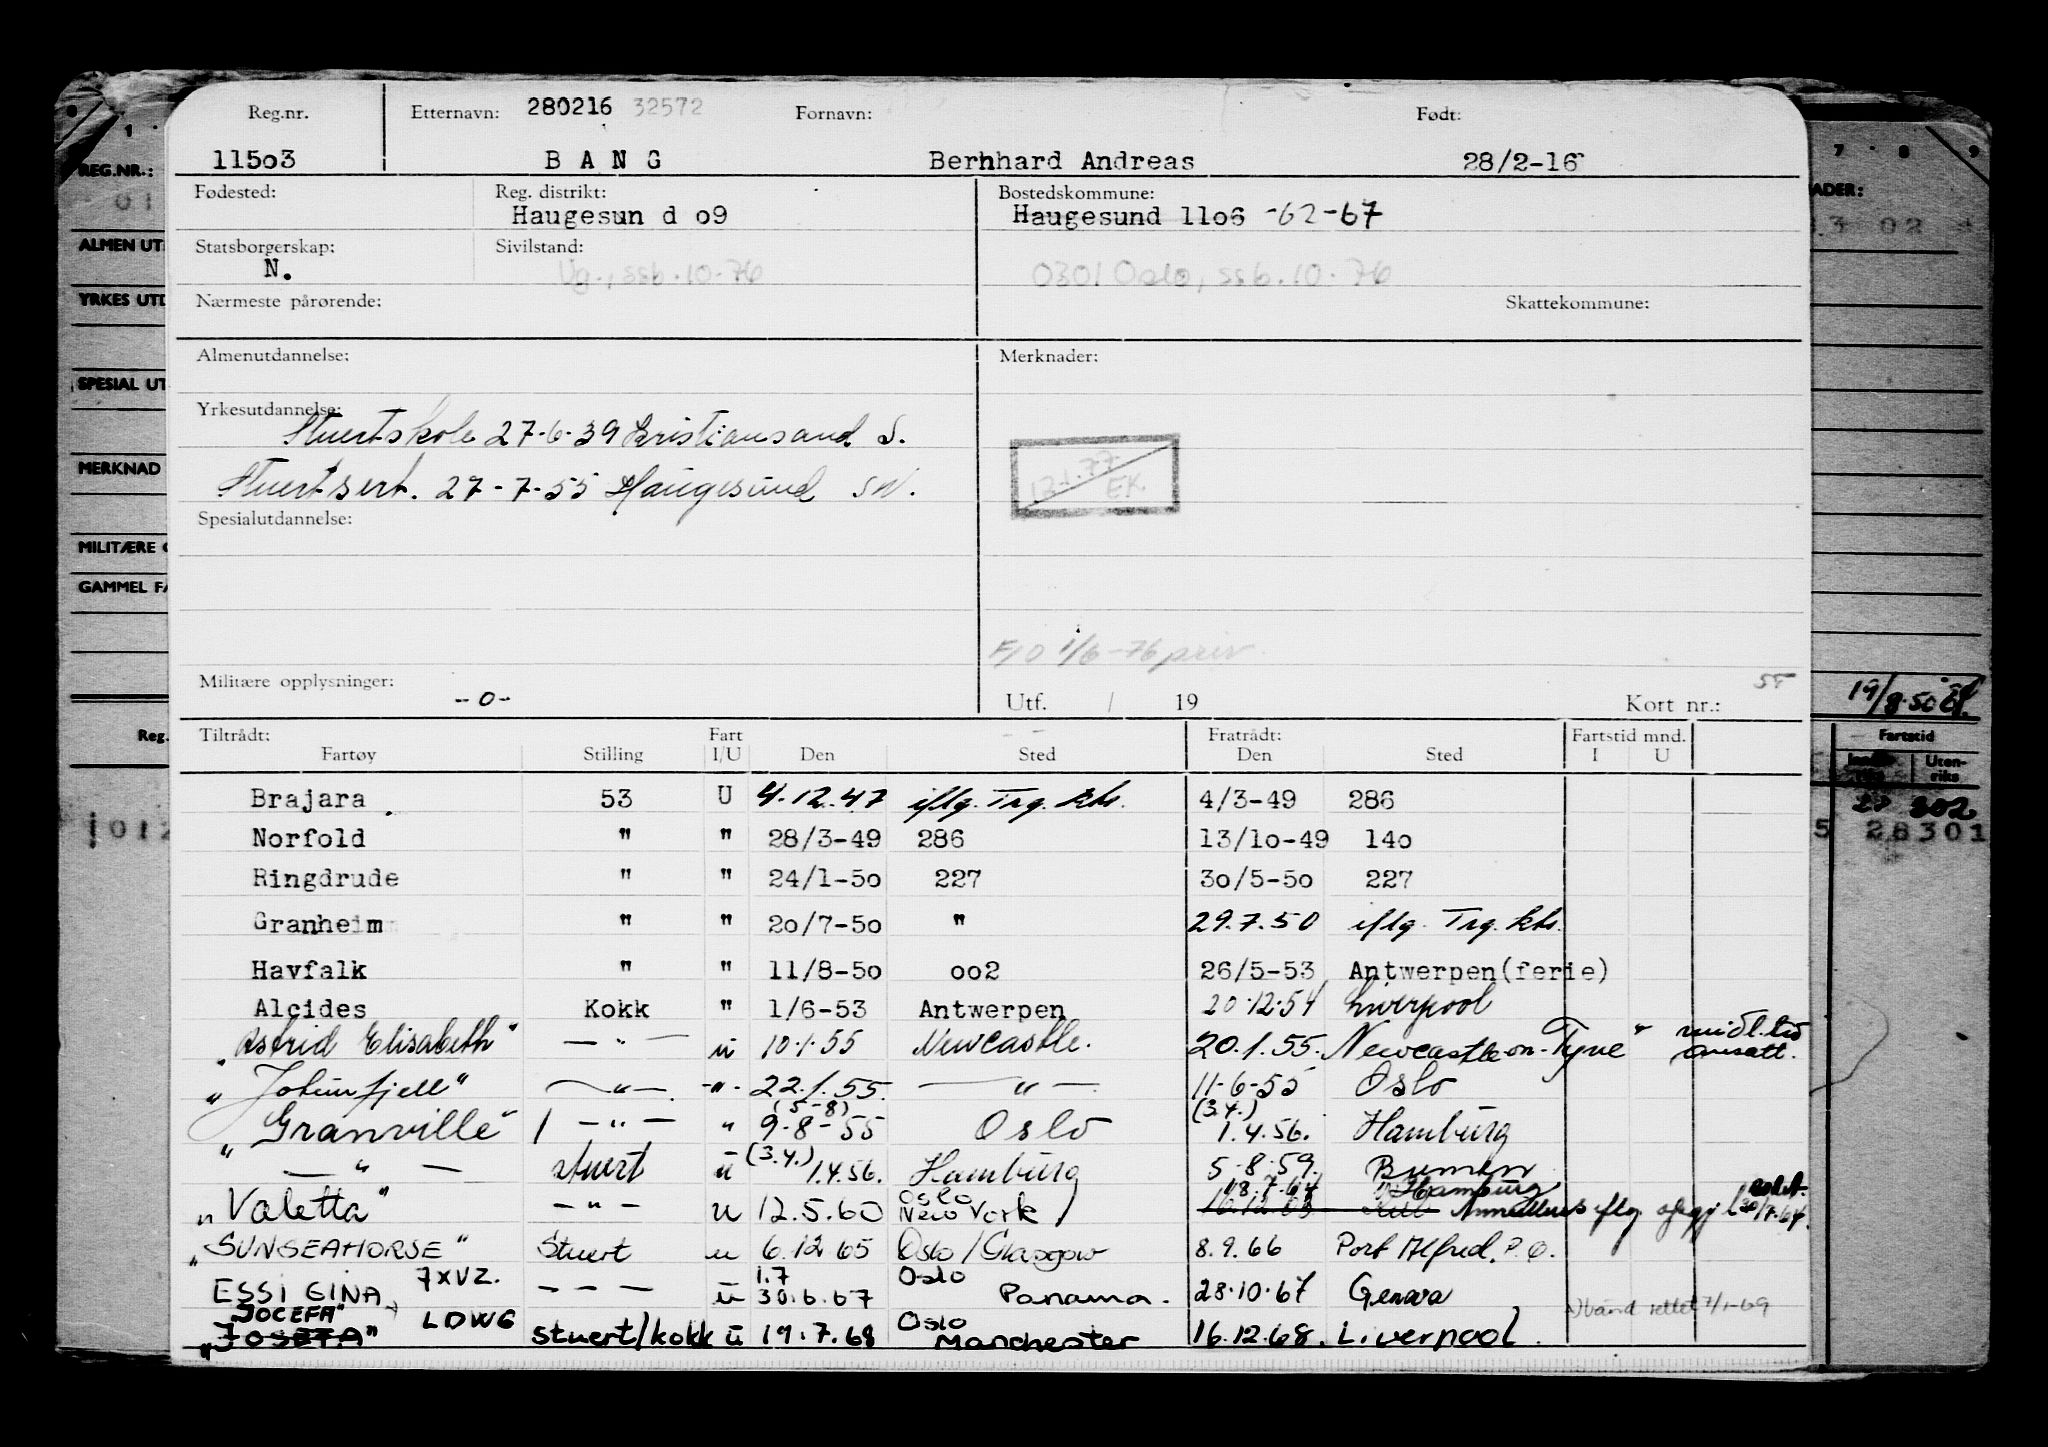 Reg.nr. Etternavn: 280216 32572 Fornavn: Født:
11503 B A N G Bernhard Andreas 28/2-16
Fødested: Reg. distrikt: Bostedskommune:
Haugesun d o9 Haugesund 11o6 -62-67
Statsborgerskap: Sivilstand:
N. Ug., ssb.10-76 0301 Oslo, ssb.10.76
Nærmeste pårørende: Skattekommune:
Almenutdannelse: Merknader:
Yrkesutdannelse:
Stuertskole 27-6-39 Kristiansand S.
Stuertsert. 27-7-55 Haugesund
12.1.77 EK.
Spesialutdannelse:
1/6-76 priv.
Militære opplysninger: -o- Utf. / 19 Kort nr.:
Tiltrådt: Fart Fratrådt: Fartstid mnd.
Fartøy Stilling I/U Den Sted Den Sted I U
Brajara 53 U 4.12.47 iflg. Trg. kts. 4/3-49 286
Norfold " " 28/3-49 286 13/1o-49 14o
Ringdrude " " 24/1-5o 227 3o/5-5o 227
Granheim " " 2o/7-5o " 29.7.50 iflg. Trg. kts.
Havfalk " " 11/8-5o oo2 26/5-53 Antwerpen(ferie)
Alcides Kokk " 1/6-53 Antwerpen 20.12.54 Liverpool
"Astrid Elisabeth" — " — u 10.1.55 Newcastle. 20.1.55. Newcastle on-Tyne" midl.tid ansatt.
"Jotunfjell" — " — - " - 22.1.55. — " — 11-6-55 Oslo
"Granville" — " — " (5-8) 9-8-55 Oslo (3.4.) 1.4.56. Hamburg
— " — stuert u (3.4.) 1.4.56. Hamburg 5-8-59. Bremen
"Valetta" — " — u 12.5.60 Oslo New York 18.7.64 Hamburg
"SUNSEAHORSE" Stuert u 6.12.65 Oslo/Glasgow 8.9.66 Port Alfred. P.Q.
ESSI GINA 7XVZ. - - - u 1.7 30.6.67 Oslo Panama. 28.10.67 Genova
"JOCEFA" LDWG stuert/kokk u 19.7.68 Oslo Manchester 16.12.68. Liverpool.
"JOSEFA"
rettet 7/1-69
REG.NR.:
ALMEN UT
YRKES UTD
SPESIAL UT
MERKNAD
MILITÆRE
GAMMEL FA
Reg.
19/8.50
Fartstid
Uten-
riks
302
28301